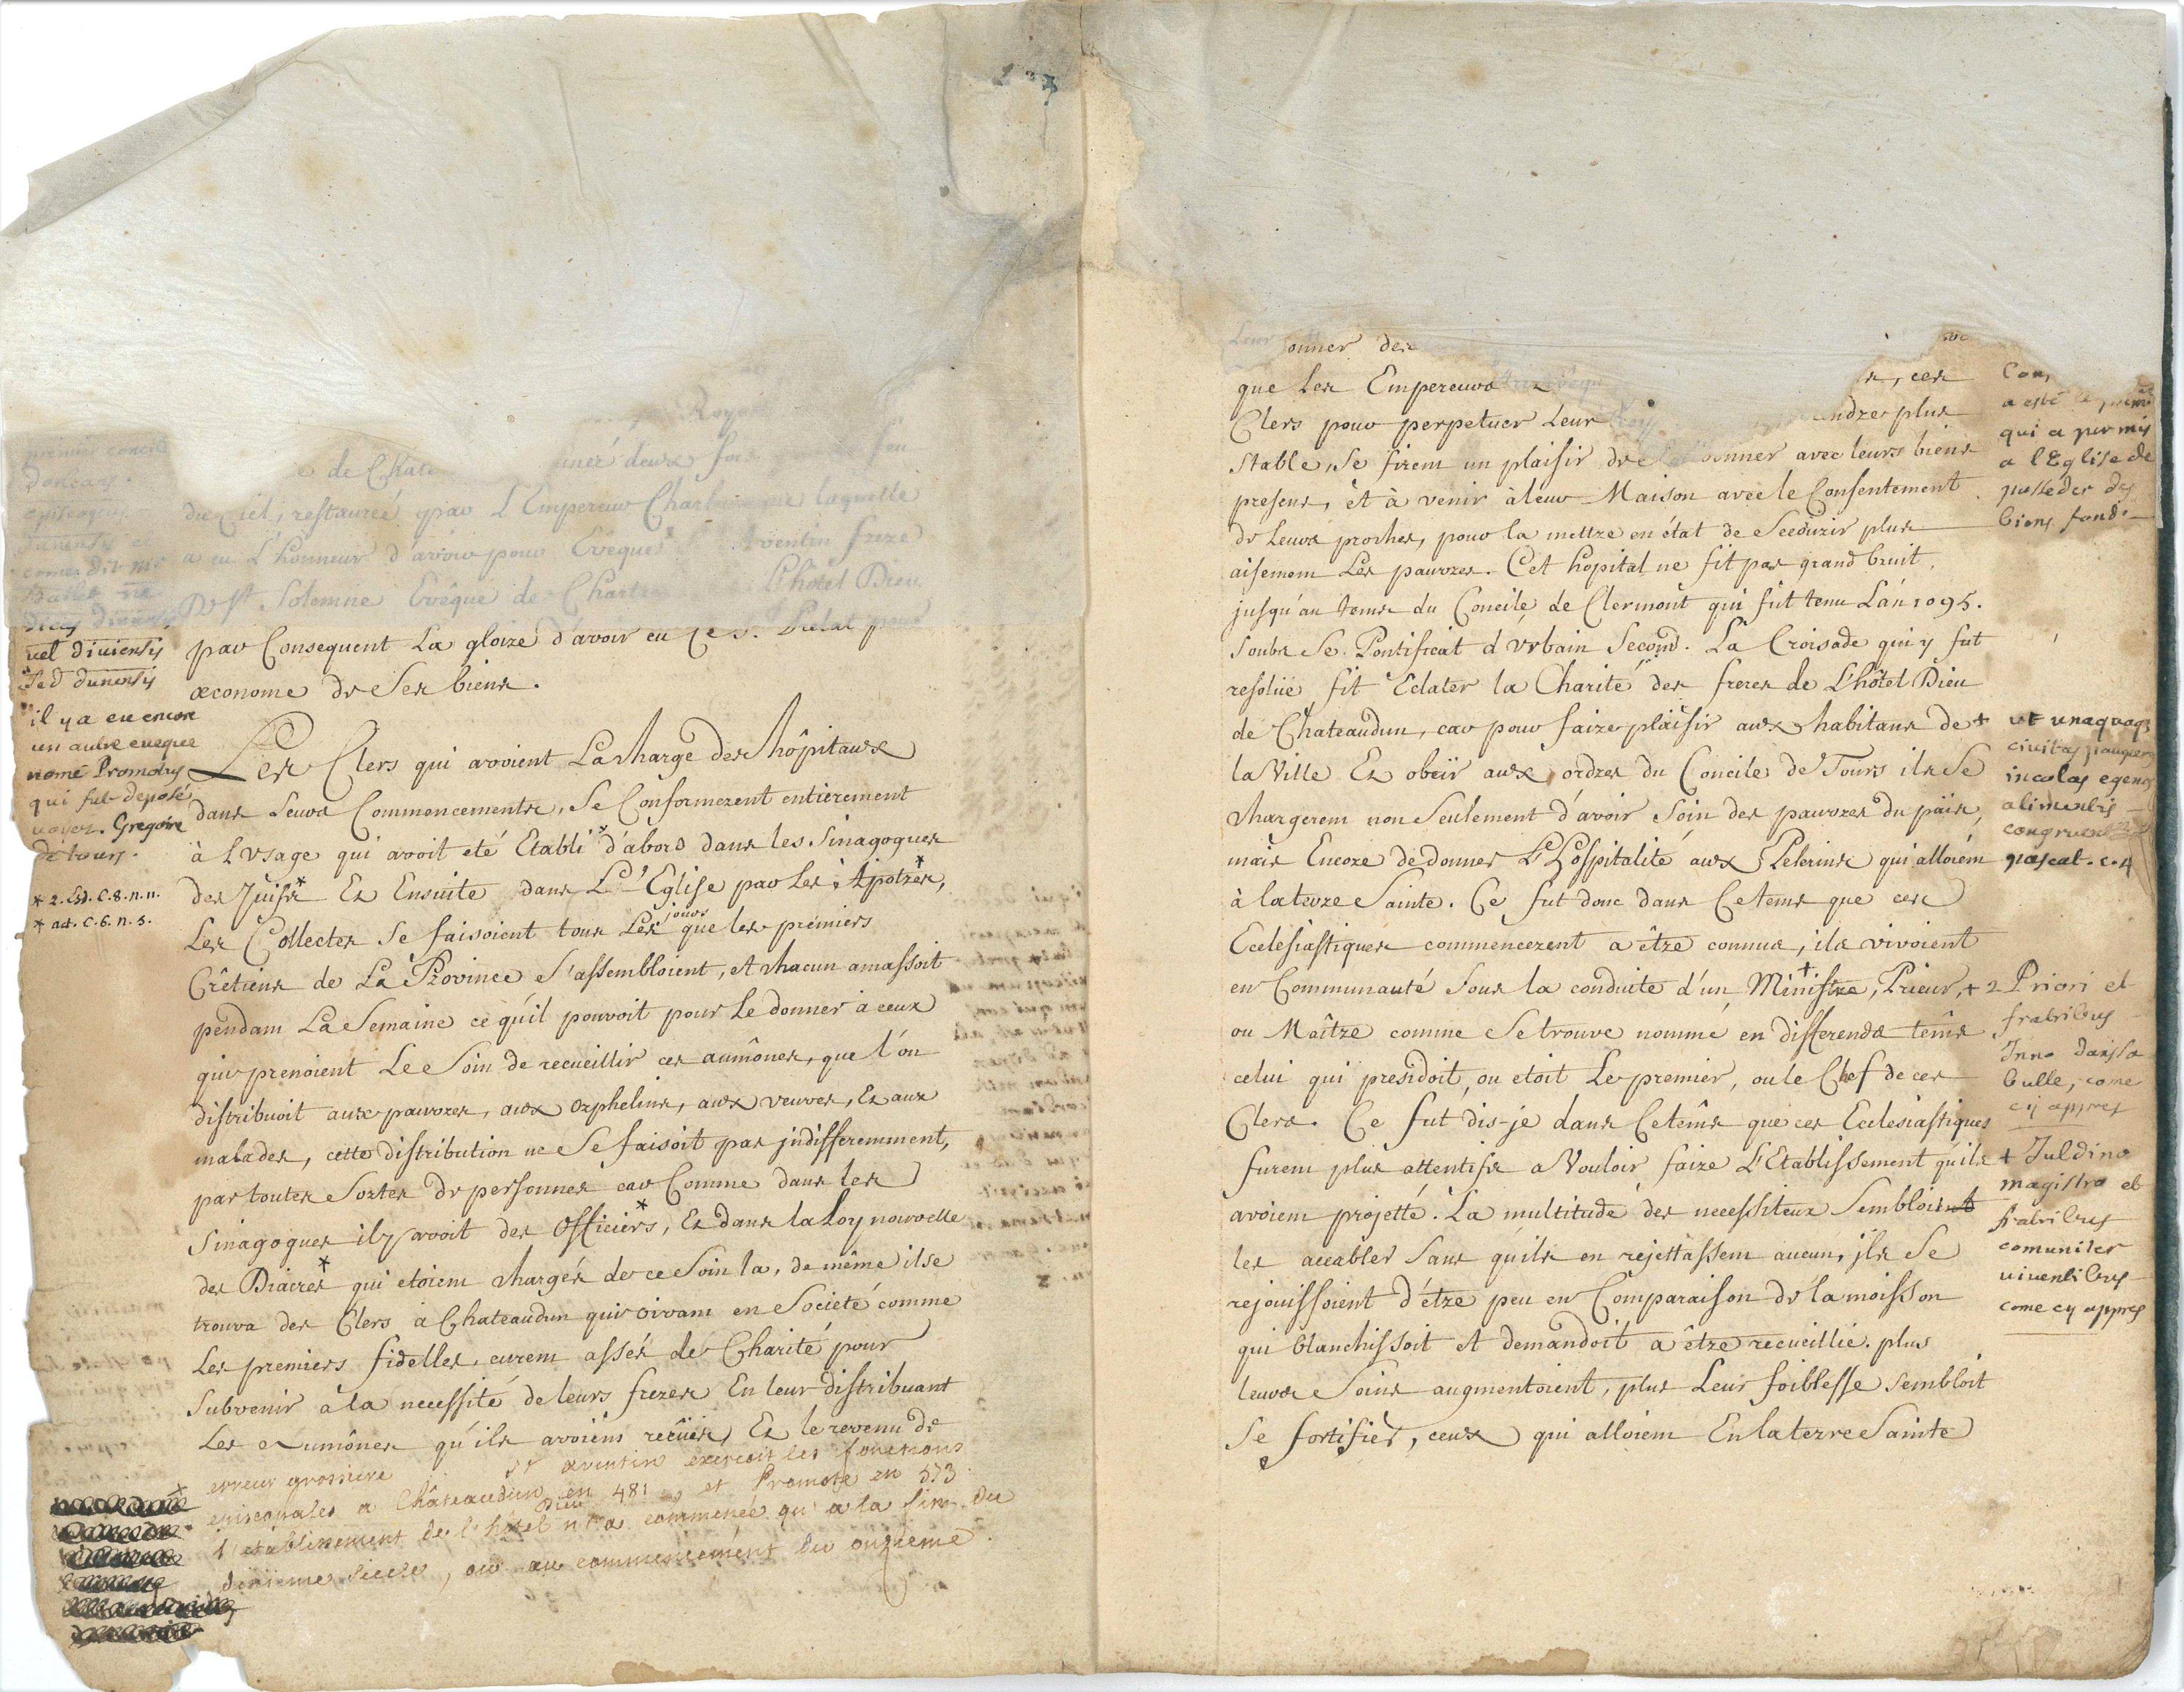 Royau
de Chate
iné deux fois
feu
du Ciel, restaureé par L'Empereur Charlemagne laquelle
a eu L'honneur d'avoir pour Evêque Aventin freze
De St. Solemne Evêque de Chartres L'hôtel Dieu
par Consequent La gloire d'avoir eu ce S. Prelat pour
œconome de Ses biens.
Les Clers qui avoient La charge des hôpitaux
dans Leurs Commencements, Se Conformerent entierement
à L'Usage qui avoit eté Etabli d'abord dans les Sinagogues
des Juifs* Et Ensuite dans L'Eglise par les Apotres*,
Les Collectes Se faisoient tous Les jours que les premiers
Crêtiens de La Province S'assembloient, et chacun amassoit
pendant La Semaine ce qu'il pouvoit pour Le donner à ceux
qui prenoient Le Soin de recueillir ces aumônes, que l'on
distribuoit aux pauvres, aux orphelins, aux veuves, Et aux
malades, cette distribution ne Se faisoit pas indifferemment,
par toutes Sortes de personnes car Comme dans les
Sinagogues il y avoit des Officiers*, Et dans la Loy nouvelle
des Diacres* qui etoient chargés de ce Soin la, de même il se
trouva des Clers à Chateaudun qui vivant en Societé comme
Les premiers fidelles, eurent assés de Charité pour
Subvenir à la necessité de leurs freres En leur distribuant
Les Aumônes qu'ils avoient reçües, Et le revenu de
erreur grossiere St aventin exercoit les fonctions
episcopales a Châteaudun en 481, et Promote en 573.
l'etablissement de l'hôtel Dieu n'a commencé qu'a la fin du
dixieme siecle, ou au commencement du onzieme.
premier concile
d'orleans.
episcopus
dunensis et
come dit mr
Baillet ne
dicas divinensis
vel diviensis
sed dunensis
il y a eu encore
un autre eveque
nomé Promotus
qui fut deposé
voyez. Gregoire
de tours.
* 2. Esd. C. 8. n. 11.
* act. C. 6. n. 3.
Leur donner des
que Les Empereurs
s, ces
Clers pour perpetuer Leur
endre plus
Stable, Se firent un plaisir de donner avec leurs biens
presens, et à venir à leur Maison avec le Consentement
de Leurs proches, pour la mettre en état de Secourir plus
aisement Les pauvres. Cet hôpital ne fit pas grand bruit,
jusqu'au tems du Concile de Clermont qui fut tenu L'an 1095.
Soubs Le Pontificat d'Urbain Second. La Croisade qui y fut
resolüe fit Eclater la Charité des freres de L'hôtel Dieu
de Chateaudun, car pour faire plaisir aux habitans de +
la Ville Et obeïr aux ordres du Concile de Tours ils Se
chargerent non Seulement d'avoir Soin des pauvres du païs,
mais Encore de donner L'Hospitalité aux Pelerins qui alloient
à la terre Sainte. Ce fut donc dans Ce tems que ces
Ecclesiastiques commencerent a être connus, ils vivoient
en Communauté Sous la conduite d'un Ministre+, Prieur, + 2
ou Maître comme Se trouve nommé en differends têms
celui qui presidoit, ou etoit Le premier, ou le Chef de ces
Clers. Ce fut dis-je dans Ce têms que ces Ecclesiastiques
furent plus attentifs a Vouloir faire L'Etablissement qu'ils +
avoient projetté. La multitude des necessiteux Sembloient
les accabler Sans qu'ils en rejettassent aucun, ils Se
rejouissoient d'être peu en Comparaison de la moisson
qui blanchissoit et demandoit a être recueillie. plus
leurs Soins augmentoient, plus Leur foiblesse sembloit
Se fortifier, ceux qui alloient En la terre Sainte
Con
a esté le premier
qui a permis
a l'Eglise de
posseder des
biens fonds
ut unaquaq3
civitas pauperes
incolas egenos
alimentis
congruentibus
pascat. c. 4
Priori et
fratribus
Inno dans sa
bulle, come
cy appres
Juldino
magistro et
fratribus
comuniter
viventibus
come cy appres